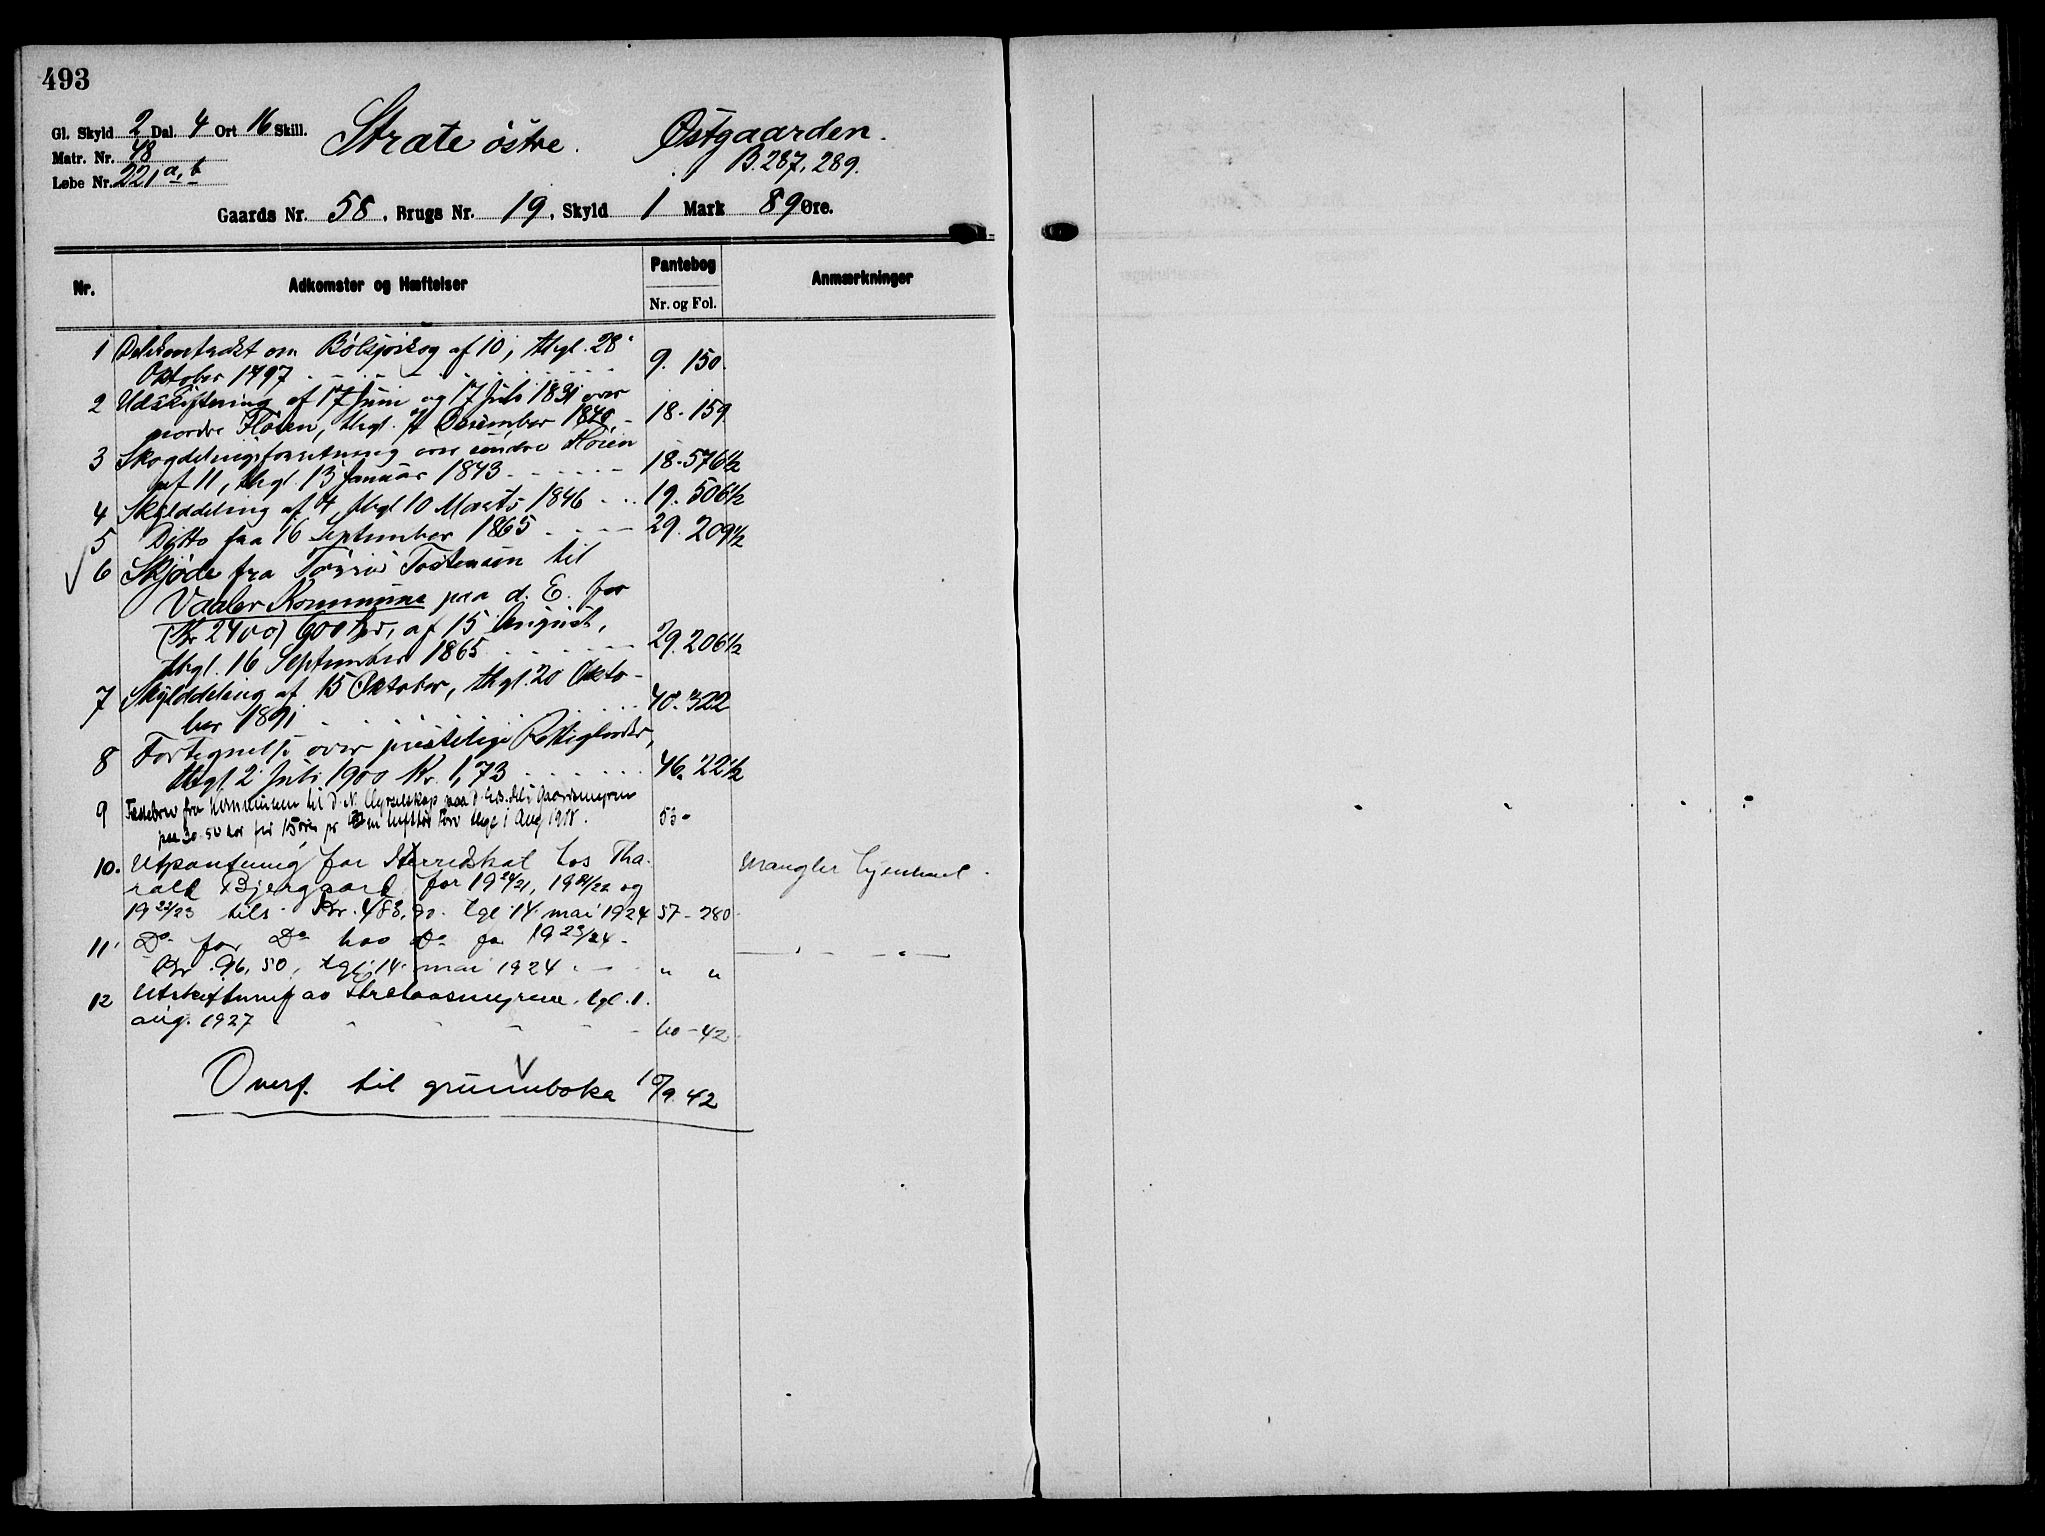 493
Gl. Skyld 2 Dal. 4 Ort 16 Skill.
Matr. Nr. 48
Løbe Nr. 221 a, b
Strate østre. Østgaarden.
B. 287, 289.
Gaards Nr. 58, Brugs Nr. 19, Skyld 1 Mark 89 Øre.
Nr. Adkomster og Hæftelser Pantebog Anmærkninger
Nr. og Fol.
1 Delekontrakt om af 10, thgl. 28
Oktober 1797 9. 150.
2 Udskiftning af 17 Juni og 17 Juli 1831 over
nordre Fløien, thgl. December 1840 18. 159
3 Skogdelingsforretning over søndre Fløien
af 11, thgl. 13 Januar 1843 18. 576 1/2
4 Skylddeling af 4, thgl 10 Marts 1846 19. 506 1/2
5 Ditto fra 16 September 1865 29. 209 1/2
6 Skjøde fra Tostensen til
Vaaler Kommune paa d. E. for
(Kr 2400) 600 Spd, af 15 August,
thgl. 16 September 1865 29. 206 1/2
7 Skylddeling af 15 Oktober, thgl. 20 Okto-
ber 1891 40. 322
8 Fortegnelse over prestelige Rettigheder,
thgl. 2 Juli 1900 Kr. 1,73 46. 22 1/2
9 Fæstebrev fra kommunen til D. N. Myrselskap paa d. E.s del i Gaardsmyren
paa 30-50 aar for 15 øre pr lufttør Torv thgl 1 Aug 53.
10. Utpantning for Herredskat hos Tha-
rald Bjergaard for 1920/21, 1921/22 og
1922/23 tils. Kr. 483,90. tgl. 14. mai 1924 57 - 280
mangler hjemmel.
11 Do for Do hos Do for 1923/24.
Kr. 96,50, tgl. 14. mai 1924 " "
12 Utskiftning av Strataasmyrene, tgl. 1.
aug. 1927 60 - 42.
Overf. til grunnboka 10/9. 42